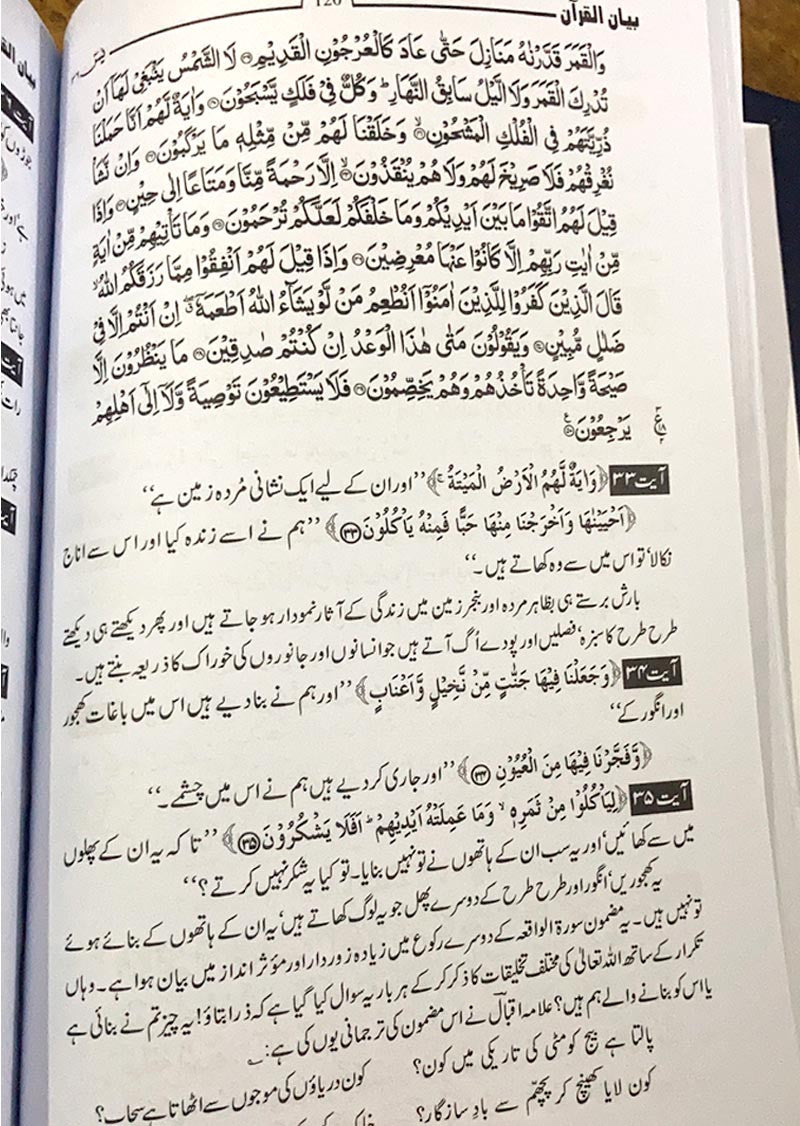 بيان القرآن
126
يٰسٓ ٣٦
وَالْقَمَرَ قَدَّرْنٰهُ مَنَازِلَ حَتّٰى عَادَ كَالْعُرْجُوْنِ الْقَدِيْمِ ۝ لَا الشَّمْسُ يَنْۢبَغِيْ لَهَآ اَنْ
تُدْرِكَ الْقَمَرَ وَلَا الَّيْلُ سَابِقُ النَّهَارِ ؕ وَكُلٌّ فِيْ فَلَكٍ يَّسْبَحُوْنَ ۝ وَاٰيَةٌ لَّهُمْ اَنَّا حَمَلْنَا
ذُرِّيَّتَهُمْ فِي الْفُلْكِ الْمَشْحُوْنِ ۝ وَخَلَقْنَا لَهُمْ مِّنْ مِّثْلِهٖ مَا يَرْكَبُوْنَ ۝ وَاِنْ نَّشَاْ
نُغْرِقْهُمْ فَلَا صَرِيْخَ لَهُمْ وَلَا هُمْ يُنْقَذُوْنَ ۝ اِلَّا رَحْمَةً مِّنَّا وَمَتَاعًا اِلٰى حِيْنٍ ۝ وَاِذَا
قِيْلَ لَهُمُ اتَّقُوْا مَا بَيْنَ اَيْدِيْكُمْ وَمَا خَلْفَكُمْ لَعَلَّكُمْ تُرْحَمُوْنَ ۝ وَمَا تَاْتِيْهِمْ مِّنْ اٰيَةٍ
مِّنْ اٰيٰتِ رَبِّهِمْ اِلَّا كَانُوْا عَنْهَا مُعْرِضِيْنَ ۝ وَاِذَا قِيْلَ لَهُمْ اَنْفِقُوْا مِمَّا رَزَقَكُمُ اللّٰهُ ۙ
قَالَ الَّذِيْنَ كَفَرُوْا لِلَّذِيْنَ اٰمَنُوْٓا اَنُطْعِمُ مَنْ لَّوْ يَشَآءُ اللّٰهُ اَطْعَمَهٗٓ ۖ اِنْ اَنْتُمْ اِلَّا فِيْ
ضَلٰلٍ مُّبِيْنٍ ۝ وَيَقُوْلُوْنَ مَتٰى هٰذَا الْوَعْدُ اِنْ كُنْتُمْ صٰدِقِيْنَ ۝ مَا يَنْظُرُوْنَ اِلَّا
صَيْحَةً وَّاحِدَةً تَاْخُذُهُمْ وَهُمْ يَخِصِّمُوْنَ ۝ فَلَا يَسْتَطِيْعُوْنَ تَوْصِيَةً وَّلَآ اِلٰٓى اَهْلِهِمْ
يَرْجِعُوْنَ ۝
آیت ۳۳ ﴿وَاٰيَةٌ لَّهُمُ الْاَرْضُ الْمَيْتَةُ ۚ﴾ ’’اور ان کے لیے ایک نشانی مُردہ زمین ہے‘‘
﴿اَحْيَيْنٰهَا وَاَخْرَجْنَا مِنْهَا حَبًّا فَمِنْهُ يَاْكُلُوْنَ ۳۳﴾ ’’ہم نے اسے زندہ کیا اور اس سے اناج
نکالا‘ تو اس میں سے وہ کھاتے ہیں۔‘‘
بارش برستے ہی بظاہر مردہ اور بنجر زمین میں زندگی کے آثار نمودار ہو جاتے ہیں اور پھر دیکھتے ہی دیکھتے
طرح طرح کا سبزہ‘ فصلیں اور پودے اُگ آتے ہیں جو انسانوں اور جانوروں کی خوراک کا ذریعہ بنتے ہیں۔
آیت ۳۴ ﴿وَجَعَلْنَا فِيْهَا جَنّٰتٍ مِّنْ نَّخِيْلٍ وَّاَعْنَابٍ﴾ ’’اور ہم نے بنا دیے ہیں اس میں باغات کھجور
اور انگور کے‘‘
﴿وَّفَجَّرْنَا فِيْهَا مِنَ الْعُيُوْنِ ۳۴﴾ ’’اور جاری کر دیے ہیں ہم نے اس میں چشمے۔‘‘
آیت ۳۵ ﴿لِيَاْكُلُوْا مِنْ ثَمَرِهٖ ۙ وَمَا عَمِلَتْهُ اَيْدِيْهِمْ ؕ اَفَلَا يَشْكُرُوْنَ ۳۵﴾ ’’تا کہ یہ ان کے پھلوں
میں سے کھائیں‘ اور یہ سب ان کے ہاتھوں نے تو نہیں بنایا۔ تو کیا یہ شکر نہیں کرتے؟‘‘
یہ کھجوریں‘ انگور اور طرح طرح کے دوسرے پھل جو یہ لوگ کھاتے ہیں‘ یہ ان کے ہاتھوں کے بنائے ہوئے
تو نہیں ہیں۔ یہ مضمون سورۃ الواقعہ کے دوسرے رکوع میں زیادہ زور دار اور مؤثر انداز میں بیان ہوا ہے۔ وہاں
تکرار کے ساتھ اللہ تعالیٰ کی مختلف تخلیقات کا ذکر کر کے ہر بار یہ سوال کیا گیا ہے کہ ذرا بتاؤ! یہ چیز تم نے بنائی ہے
یا اس کو بنانے والے ہم ہیں؟ علامہ اقبالؔ نے اس مضمون کی ترجمانی یوں کی ہے: ؎
پالتا ہے بیج کو مٹی کی تاریکی میں کون؟
کون دریاؤں کی موجوں سے اٹھاتا ہے سحاب؟
کون لایا کھینچ کر پچھّم سے بادِ سازگار؟